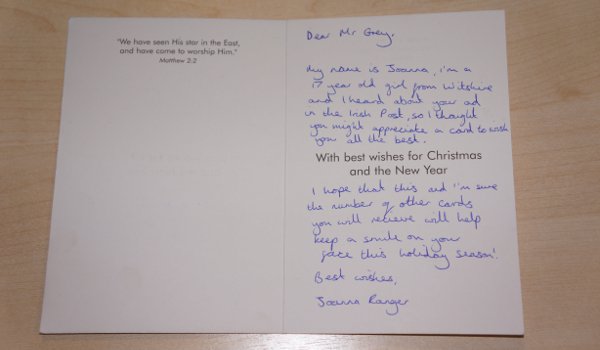 "We have seen His star in the East,
and have come to worship Him."
Matthew 2:2
Dear Mr Grey,
My name is Joanna, i'm a
17 year old girl from Wiltshire
and I heard about your ad
in the Irish Post, so I thought
you might appreciate a card to wish
you all the best.
With best wishes for Christmas
and the New Year
I hope that this and i'm sure
the number of other cards
you will recieve will help
keep a smile on your
face this holiday season!
Best wishes,
Joanna Ranger